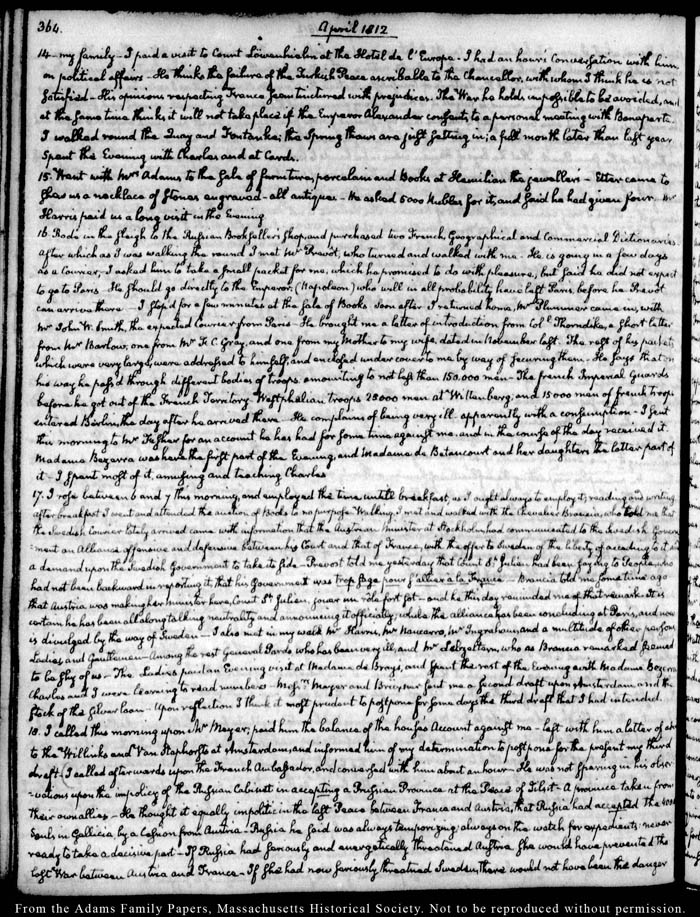 364.
April 1812
14. my family - I paid a visit to Count Löwenhielm at the Hotel de l'Europe - I had an hours Conversation with him
on political affairs - He thinks the failure of the Turkish Peace ascribable to the Chancellor, with whom I think he is not
satisfied - His opinions respecting France seem tinctured with prejudices. The War he holds impossible to be avoided, and
at the same time thinks it will not take place if the Emperor Alexander consents to a personal meeting with Bonaparte.
I walked round the Quay and Fontanka; the Spring thaws are just setting in; a full month later than last year
Spent the Evening with Charles and at Cards.
15. Went with Mrs Adams to the Sale of furniture, porcelain and Books at Hamilian the jewellers - Etter came to
shew us a necklace of Stones engraved - all antiques - He asked 5000 Rubles for it, and said he had given four - Mr
Harris paid us a long visit in the Evening
16. Rode in the Sleigh to the Russian Bookseller's shop, and purchased two French Geographical and Commercial Dictionaries.
After which as I was walking the round I met Mr Prevôt, who turned and walked with me - He is going in a few days
as a Courier, I asked him to take a small packet for me, which he promised to do with pleasure, but said he did not expect
to go to Paris. He should go directly to the Emperor, (Napoleon) who will in all probability have left Paris, before he Prevôt
can arrive there - I stop'd for a few minutes at the Sale of Books Soon after I returned home, Mr Plummer came in, with
Mr John W. Smith, the expected Courier from Paris - He brought me a letter of introduction from Coll Thorndike, a short letter
from Mr Barlow, one from Mr F. C. Gray, and one from my Mother to my wife, dated in November last. The rest of his packets
which were very large, were addressed to himself, and enclosed under cover to me by way of securing them - He says that on
his way he pass'd through different bodies of troops amounting to not less than 150.000 men - The french Imperial Guards
before he got out of the French Territory - Westphalian troops 28000 men at Wittenberg; and 15000 men of french troops
entered Berlin, the day after he arrived there - He complains of being very ill. apparently with a consumption - I sent
this morning to Mr Fisher for an account he has had for some time against me, and in the course of the day received it.
Madame Bezerra was here the first part of the Evening, and Madame de Betancourt and her daughters the latter part of
it - I spent most of it, amusing and teaching Charles
17. I rose between 6 and 7 this morning, and employed the time until breakfast, as I ought always to employ it, reading and writing
After breakfast I went and attended the auction of Books to no purpose - Walking, I met and walked with the Chevalier Brancia, who told me that
the Swedish Courier lately arrived came with information that the Austrian Minister at Stockholm had communicated to the Swedish Govern-
ment an Alliance offensive and defensive between his Court and that of France, with the offer to Sweden of the liberty of acceding to it
a demand upon the Swedish Government to take its side - Prevost told me yesterday that Count St Julien had been saying to People who
had not been backward in reporting it, that his Government was trop sage pour s'allier à la France - Brancia told me some time ago
that Austria was making her minister here, Count St Julien, jouer un rôle fort sot - and he this day reminded me of that remark - It is
certain he has been all along talking neutrality and announcing it officially, while the alliance has been concluding at Paris, and now
is divulged by the way of Sweden - I also met in my walk Mr Harris, Mr Navarro, Mr Ingraham, and a multitude of other persons
Ladies and Gentlemen - Among the rest General Pardo who has been very ill, and Mr Lebzeltern, who as Brancia remarked seemed
to be shy of us - The Ladies paid an Evening visit at Madame de Bray's, and spent the rest of the Evening with Madame Bezerra
Charles and I were learning to read numbers - Messrs Meyer and Bruxner sent me a second draft upon Amsterdam, and the
stock of the Silver loan - Upon reflection I think it most prudent to postpone for some days the third draft that I had intended.
18. I called this morning upon Mr Meyer; paid him the balance of the house's Account against me - left with him a letter of
to the Willinks and Van Staphorsts at Amsterdam, and informed him of my determination to postpone for the present my third
draft. I called afterwards upon the French Ambassador, and conversed with him about an hour - He was not sparing in his obser-
vations upon the impolicy of the Russian Cabinet in accepting a Prussian Province at the Peace of Tilsit - A province taken from
their own allies - He thought it equally impolitic in the last Peace between France and Austria, that Russia had accepted the
Souls in Gallicia, by a Cession from Austria - Russia he said was always temporizing; always on the watch for expedients; never
ready to take a decisive part - If Russia had seriously and energetically threatened Austria, she would have prevented the
last War between Austria and France - If she had now seriously threatened Sweden, there would not have been the danger
From the Adams Family Papers, Massachusetts Historical Society. Not to be reproduced without permission.